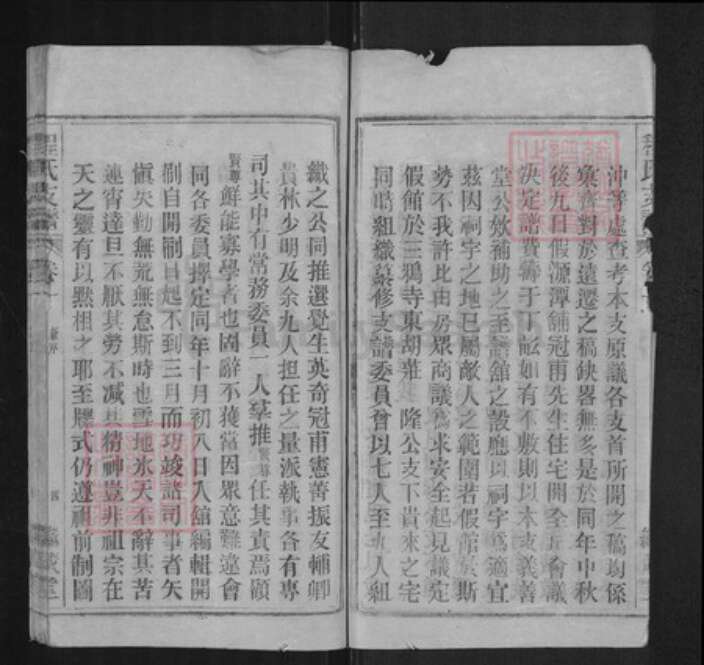 沖等處查考本支原議各支首所開之稿均係
彙齊對於遠遷之稿缺畧無多是於同年中秋
後九日假源潭舖冠甫先生住宅開全支會議
決定譜費籌于丁訟如有不敷則以本支義善
堂公欵補助之至譜舘之設應以祠宇為適宜
茲因祠宇之地已屬敵人之範圍若假舘於斯
勢不我許比由房眾商議為求安全起見議定
假舘於三鴉寺東胡莊 隆公支下貴來之宅
同時組織纂修支譜委員會以七人至九人組
織之公同推選覺生英奇冠甫憲善振友輔卿
貴林少明及余九人担任之量派執事各有專
司其中有常務委員一人羣推賢尊任其責焉顧
賢尊鮮能寡學者也固辭不獲當因眾意難違會
同各委員擇定同年十月初八日入舘編輯開
剞自開剞日起不到三月而功竣諮司事者矢
慎矢勤無荒無怠斯時也雪地氷天不辭其苦
連宵達旦不厭其勞不減其精神豈非祖宗在
天之靈有以默相之耶至牒式仍遵祖前制圖
程氏支譜 卷首
四